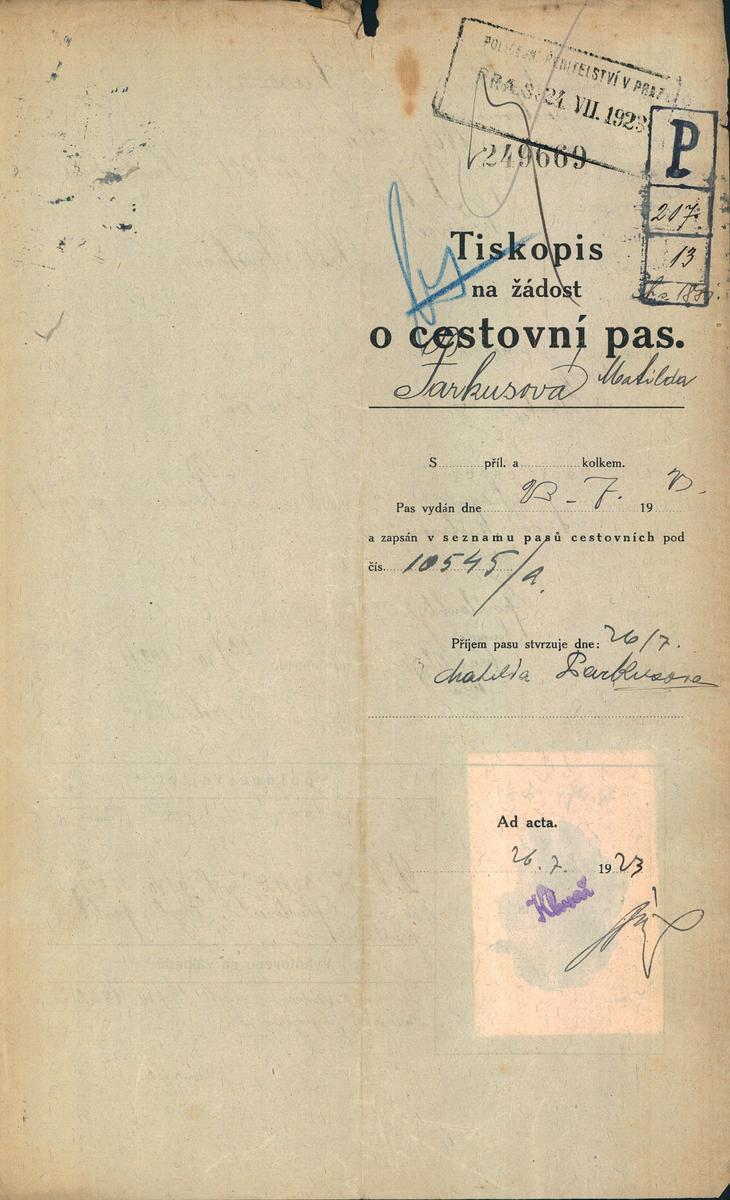 POLICEJNÍ ŘEDITELSTVÍ V PRAZE
24. VII. 1923
249669
P
207
13
Tiskopis
na žádost
o cestovní pas.
Parkusová Matilda
S ........ příl. a ........ kolkem.
Pas vydán dne 23 - 7. 19 23.
a zapsán v seznamu pasů cestovních pod
čís. 10545/a.
Příjem pasu stvrzuje dne: 26/7.
Matilda Parkusova
Ad acta.
26. 7. 1923